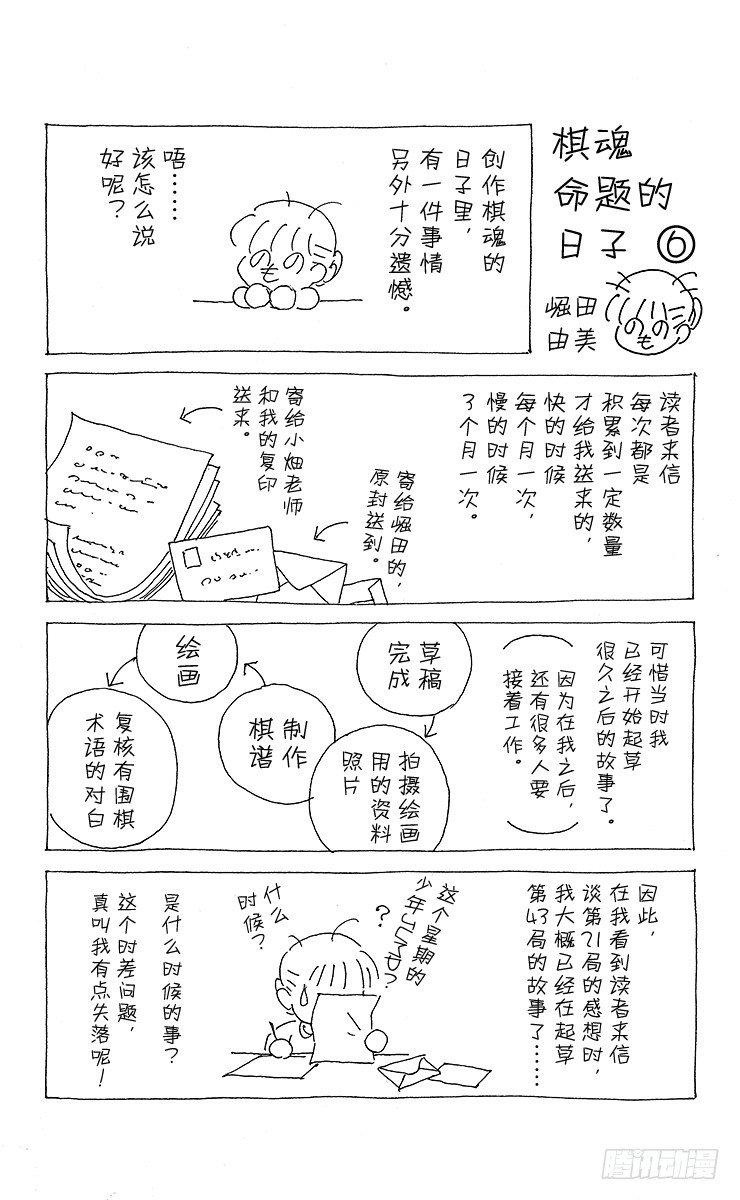 棋魂
命题的
日子 ⑥
崛田
由美
创作棋魂的
日子里，
有一件事情
另外十分遗憾。
唔……
该怎么说
好呢？
读者来信
每次都是
积累到一定数量
才给我送来的，
快的时候
每个月一次，
慢的时候
3个月一次。
寄给小畑老师
和我的复印
送来。
寄给崛田的，
原封送到。
可惜当时我
已经开始起草
很久之后的故事了。
（因为在我之后，
还有很多人要
接着工作。）
草稿
完成
拍摄绘画
用的资料
照片
制作
棋谱
绘画
复核有围棋
术语的对白
因此，
在我看到读者来信
谈第21局的感想时，
我大概已经在起草
第43局的故事了……
这个星期的
少年JUMP？
？
什么
时候？
是什么时候的事？
这个时差问题，
真叫我有点失落呢！
腾讯动漫